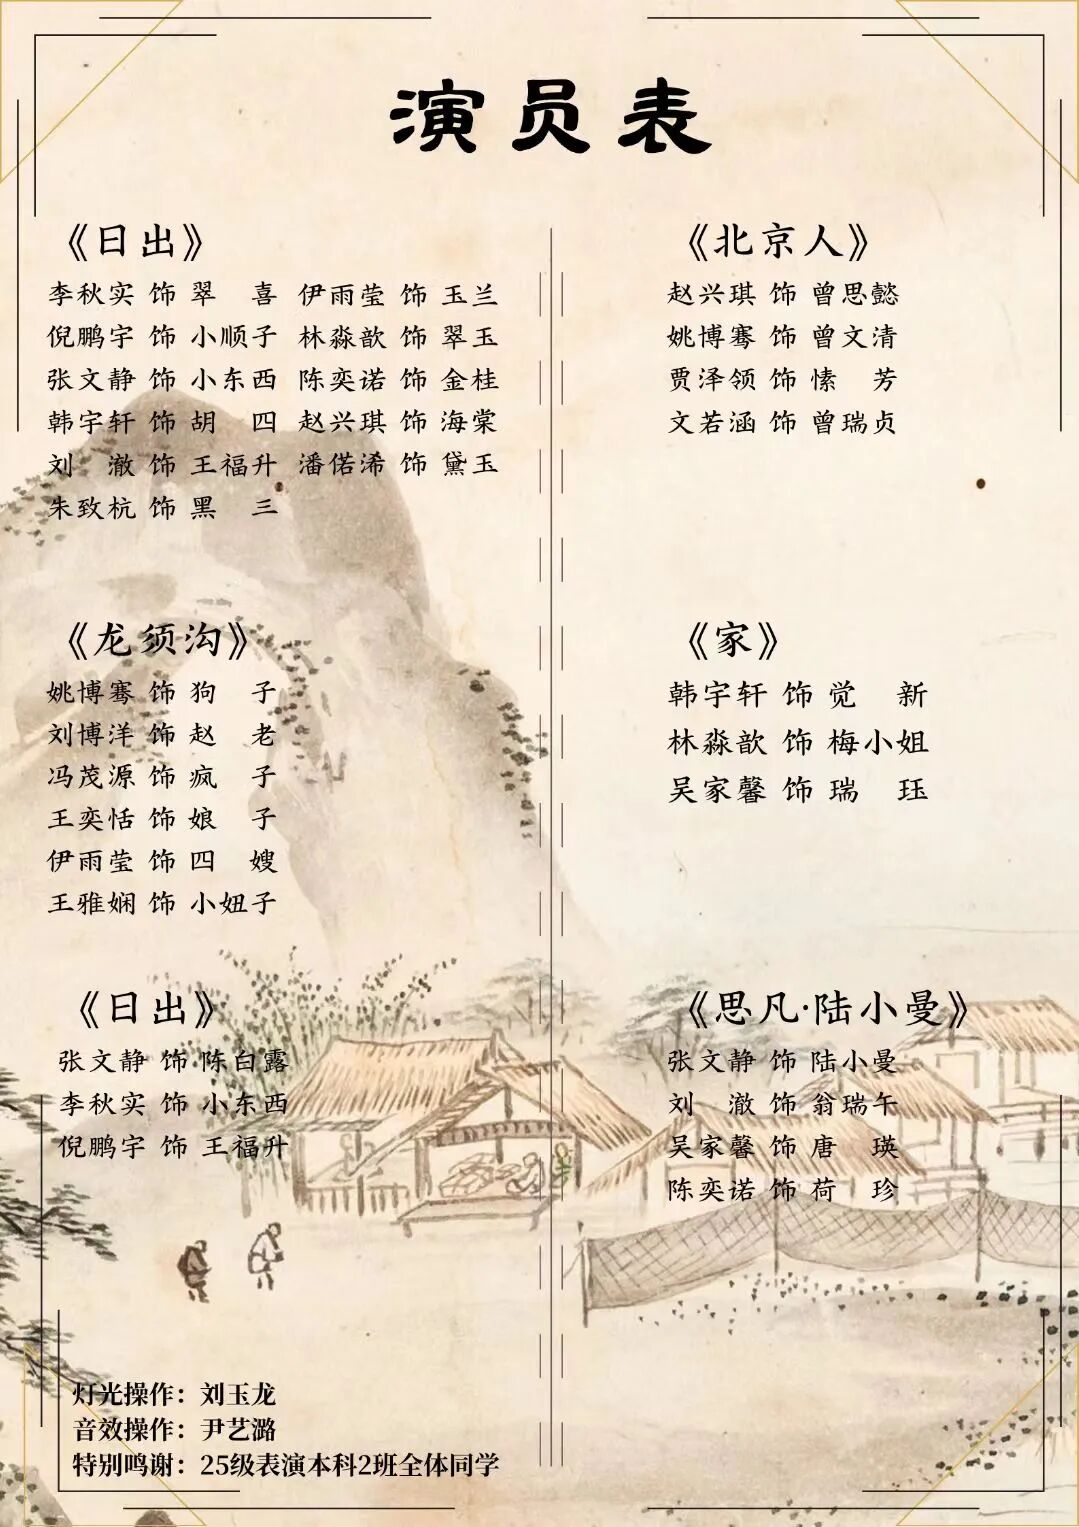 演员表
《日出》
李秋实 饰 翠 喜 伊雨莹 饰 玉兰
倪鹏宇 饰 小顺子 林淼歆 饰 翠玉
张文静 饰 小东西 陈奕诺 饰 金桂
韩宇轩 饰 胡 四 赵兴琪 饰 海棠
刘 澈 饰 王福升 潘偌浠 饰 黛玉
朱致杭 饰 黑 三
《北京人》
赵兴琪 饰 曾思懿
姚博骞 饰 曾文清
贾泽领 饰 愫 芳
文若涵 饰 曾瑞贞
《龙须沟》
姚博骞 饰 狗 子
刘博洋 饰 赵 老
冯茂源 饰 疯 子
王奕恬 饰 娘 子
伊雨莹 饰 四 嫂
王雅娴 饰 小妞子
《家》
韩宇轩 饰 觉 新
林淼歆 饰 梅小姐
吴家馨 饰 瑞 珏
《日出》
张文静 饰 陈白露
李秋实 饰 小东西
倪鹏宇 饰 王福升
《思凡·陆小曼》
张文静 饰 陆小曼
刘 澈 饰 翁瑞午
吴家馨 饰 唐 瑛
陈奕诺 饰 荷 珍
灯光操作：刘玉龙
音效操作：尹艺潞
特别鸣谢：25级表演本科2班全体同学